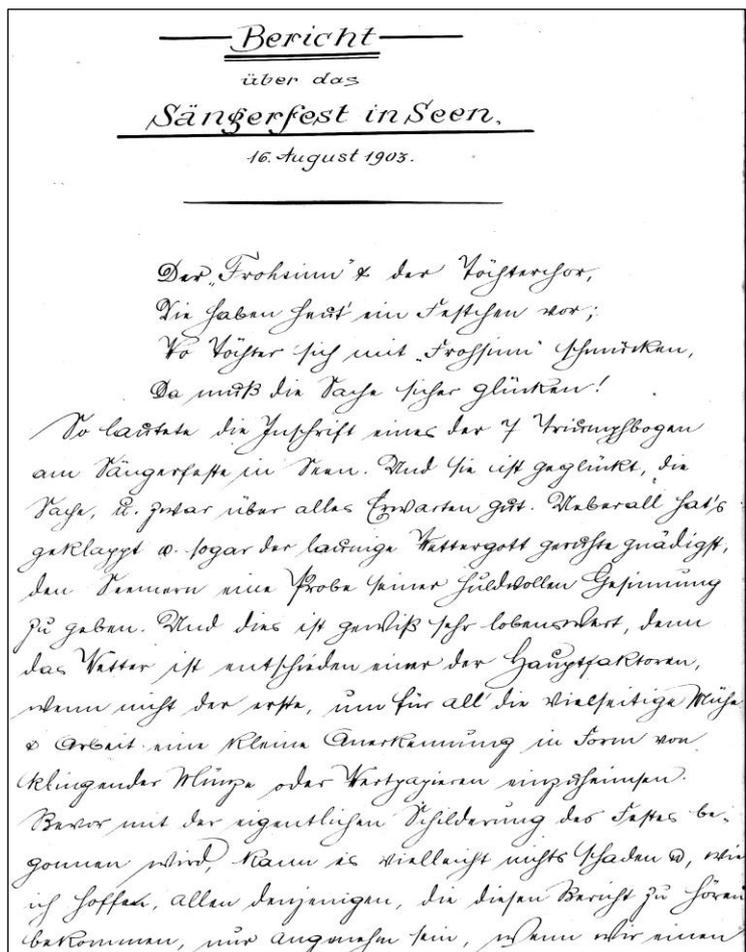 Bericht
über das
Sängerfest in Seen.
16. August 1903.
Der „Frohsinn" & der Töchterchor,
Die haben heut' ein Festchen vor;
Wo Töchter sich mit „Frohsinn" schmücken,
Da muß die Sache sicher glücken!
So lautete die Inschrift eines der 7 Triumphbogen
am Sängerfeste in Seen. Und sie ist geglückt, die
Sache, u. zwar über alles Erwarten gut. Ueberall hat's
geklappt u. sogar der launige Wettergott geruhte gnädigst,
den Seemern eine Probe seiner huldvollen Gesinnung
zu geben. Und dies ist gewiß sehr lobenswert, denn
das Wetter ist entschieden einer der Hauptfaktoren,
wenn nicht der erste, um für all' die vielseitige Mühe
& Arbeit eine kleine Anerkennung in Form von
klingender Münze oder Wertpapieren einzuheimsen.
Bevor mit der eigentlichen Schilderung des Festes be-
gonnen wird, kann es vielleicht nichts schaden u, wie
ich hoffen, allen denjenigen, die diesen Bericht zu hören
bekommen, nur angenehm sein, wenn wir einen